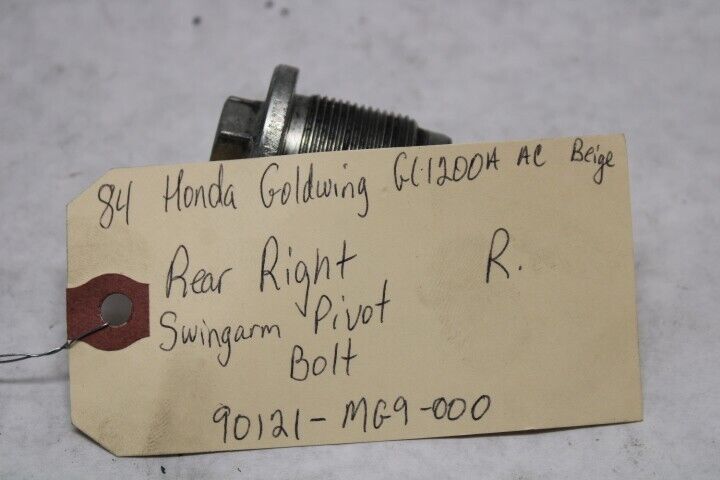 84 Honda Goldwing GL1200A AC Beige
Rear Right R.
Swingarm Pivot
Bolt
90121-MG9-000